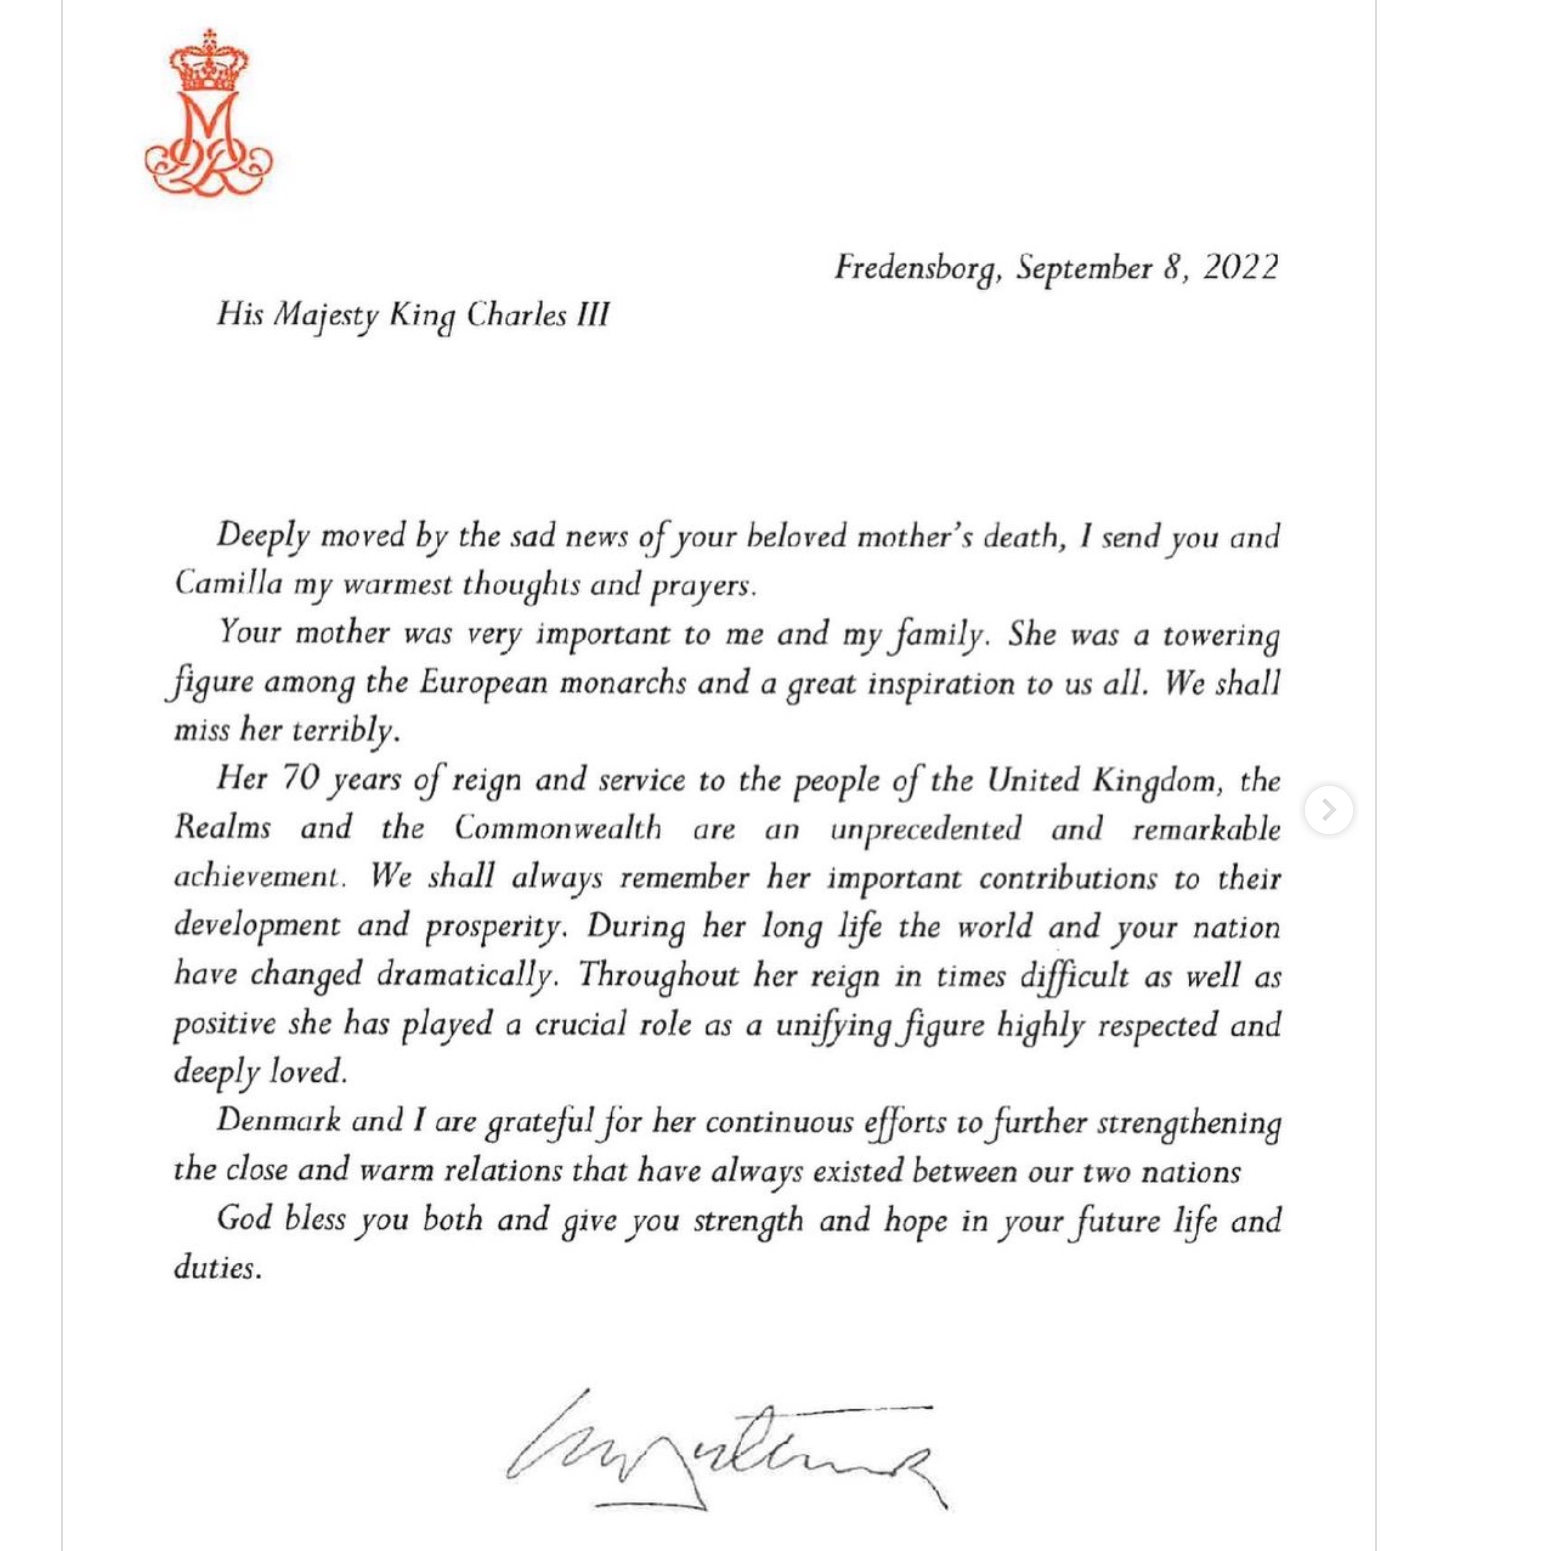 M2R
Fredensborg, September 8, 2022
His Majesty King Charles III
Deeply moved by the sad news of your beloved mother's death, I send you and
Camilla my warmest thoughts and prayers.
Your mother was very important to me and my family. She was a towering
figure among the European monarchs and a great inspiration to us all. We shall
miss her terribly.
Her 70 years of reign and service to the people of the United Kingdom, the
Realms and the Commonwealth are an unprecedented and remarkable
achievement. We shall always remember her important contributions to their
development and prosperity. During her long life the world and your nation
have changed dramatically. Throughout her reign in times difficult as well as
positive she has played a crucial role as a unifying figure highly respected and
deeply loved.
Denmark and I are grateful for her continuous efforts to further strengthening
the close and warm relations that have always existed between our two nations
God bless you both and give you strength and hope in your future life and
duties.
Margrethe R